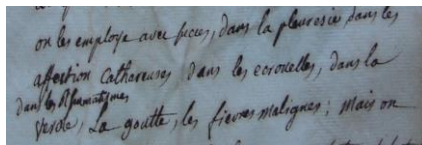 on les employe avec succes, dans la pleuresie, dans les
affection Cathareuses dans les ecrouelles, dans la
dans les Rhumatismes
verole, La goutte, les fievres malignes; mais on